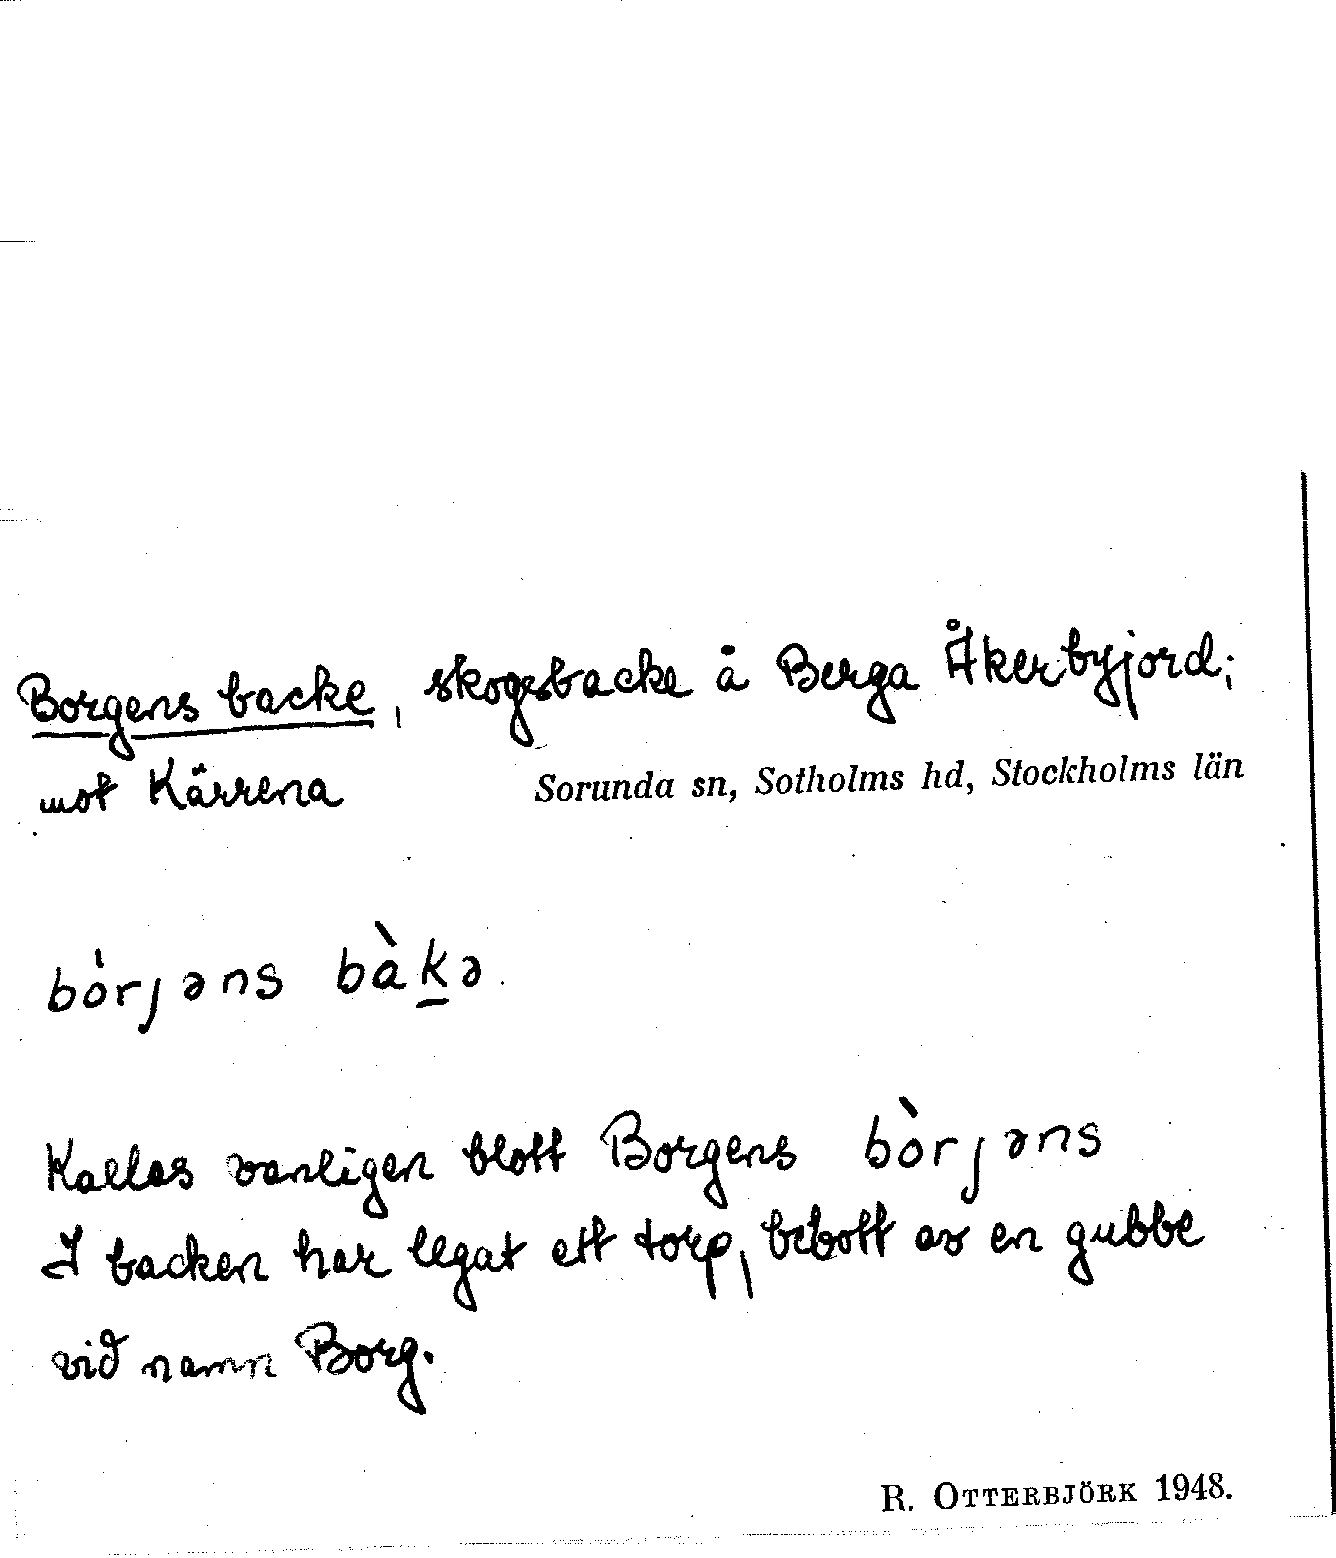 Borgens backe, skogsbacke å Berga Åkerbyjord;
mot Kärrena Sorunda sn, Sotholms hd, Stockholms län
bòrȷəns bàk̲ə
Kallas vanligen blott Borgens bòrȷəns
I backen har legat ett torp, bebott av en gubbe
vid namn Borg.
R. OTTERBJÖRK 1948.